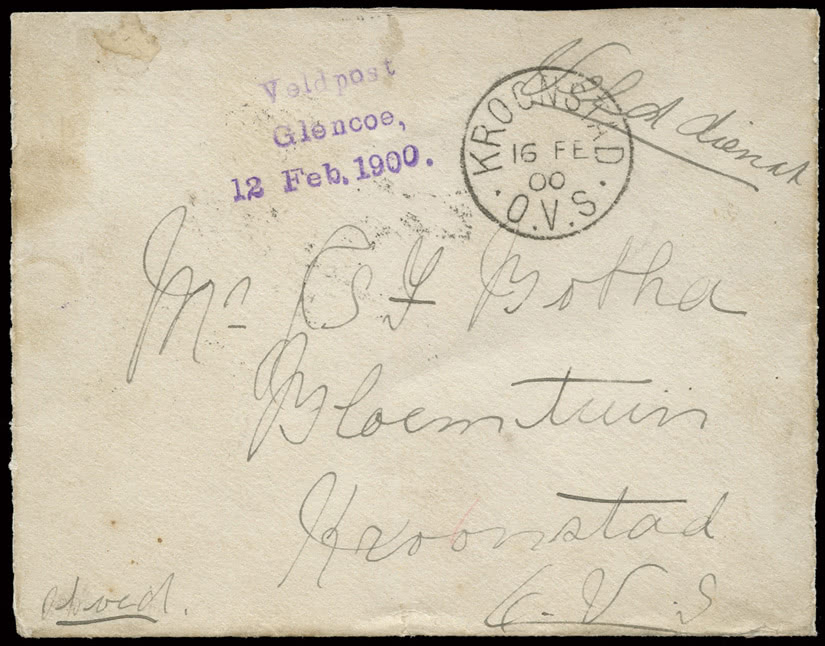 Veldpost
Glencoe,
12 Feb. 1900.
KROONSTAD
16 FE
00
O.V.S.
dienst
Mr
Botha
Bloemtuin
Kroonstad
O.V.S